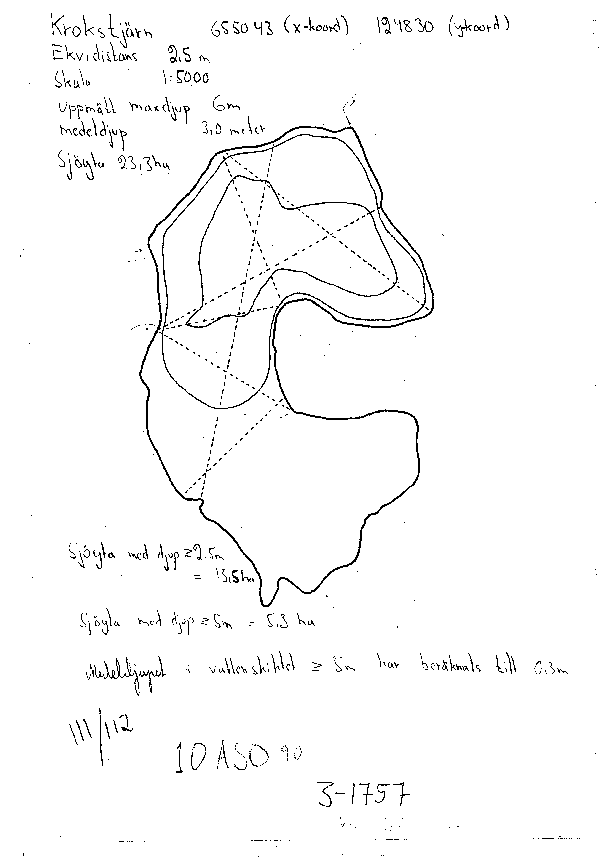 Krokstjärn 655043 (x-koord) 124830 (y-koord)
Ekvidistans 2,5 m
Skala 1:5000
Uppmätt maxdjup 6m
medeldjup 3,0 meter
Sjöyta 23,3 ha
Sjöyta med djup ≥ 2.5m
= 13,5 ha
Sjöyta med djup ≥ 5m = 5,3 ha
Medeldjupet i vattenskiktet ≥ 5m har beräknats till 0.3m
111/112
10 ASO 90
3-1757